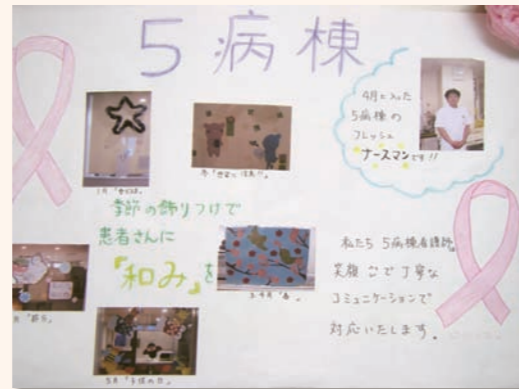 5病棟
4月に入った
5病棟の
フレッシュ
ナースマンです!!
季節の飾りつけで
患者さんに
『和み』を
3.4月「春」
5月「子供の日」
私たち5病棟看護師。
笑顔で丁寧な
コミュニケーションで
対応いたします。